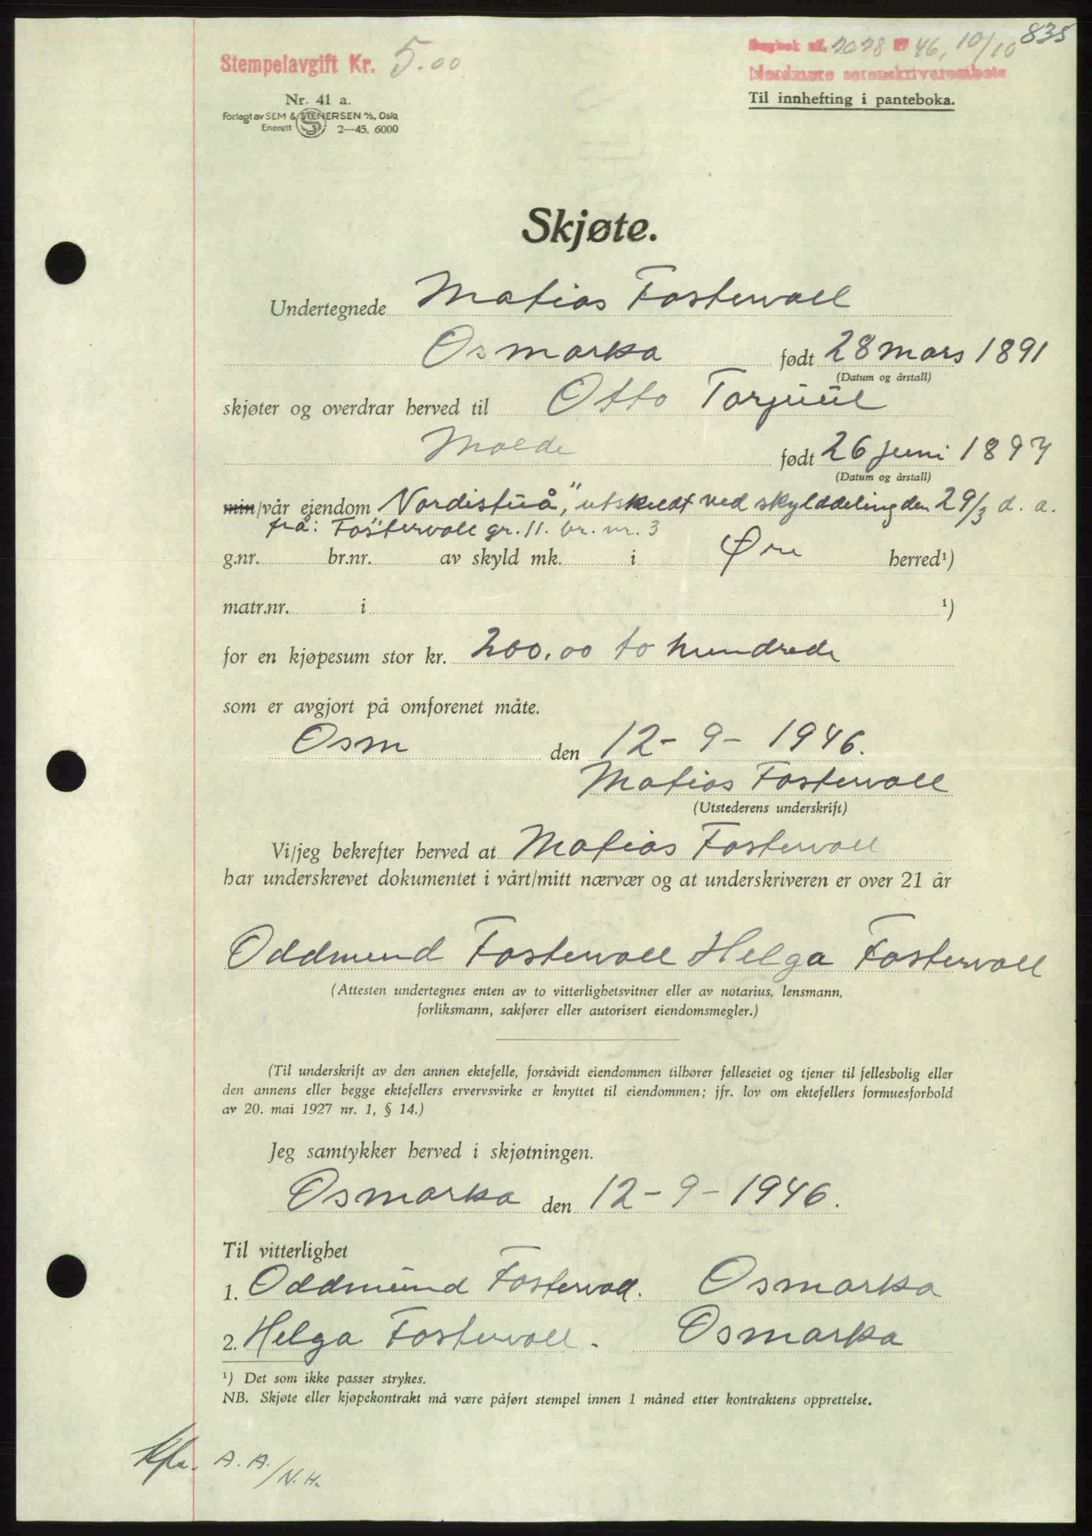 835
Stempelavgift Kr. 5.00
Dagbok nr. 2028 46, 10/10
Nordmøre sorenskriverembete
Nr. 41 a.
Til innhefting i panteboka.
Forlagt av SEM & STENERSEN A/S, Oslo
Enerett 2—45. 6000
Skjøte.
Undertegnede Matias Fostervoll
Osmarka født 28 mars 1891
(Datum og årstall)
skjøter og overdrar herved til Otto Torjuul
Molde født 26 juni 1897
(Datum og årstall)
min/vår eiendom "Nordistuå," utskildt ved skylddeling den 29/3 d. a.
fra: Fostervoll gr. 11. br. nr. 3
g.nr. br.nr. av skyld mk. i Øre herred¹)
matr.nr. i ¹)
for en kjøpesum stor kr. 200.00 to hundrede
som er avgjort på omforenet måte.
Osm den 12-9-1946.
Matias Fostervoll
(Utstederens underskrift)
Vi/jeg bekrefter herved at Matias Fostervoll
har underskrevet dokumentet i vårt/mitt nærvær og at underskriveren er over 21 år
Oddmund Fostervoll Helga Fostervoll
(Attesten undertegnes enten av to vitterlighetsvitner eller av notarius, lensmann,
forliksmann, sakfører eller autorisert eiendomsmegler.)
(Til underskrift av den annen ektefelle, forsåvidt eiendommen tilhører felleseiet og tjener til fellesbolig eller
den annens eller begge ektefellers ervervsvirke er knyttet til eiendommen; jfr. lov om ektefellers formuesforhold
av 20. mai 1927 nr. 1, § 14.)
Jeg samtykker herved i skjøtningen.
Osmarka den 12-9-1946.
Til vitterlighet
1. Oddmund Fostervoll. Osmarka
2. Helga Fostervoll. Osmarka
¹) Det som ikke passer strykes.
NB. Skjøte eller kjøpekontrakt må være påført stempel innen 1 måned etter kontraktens opprettelse.
A. A./N. H.